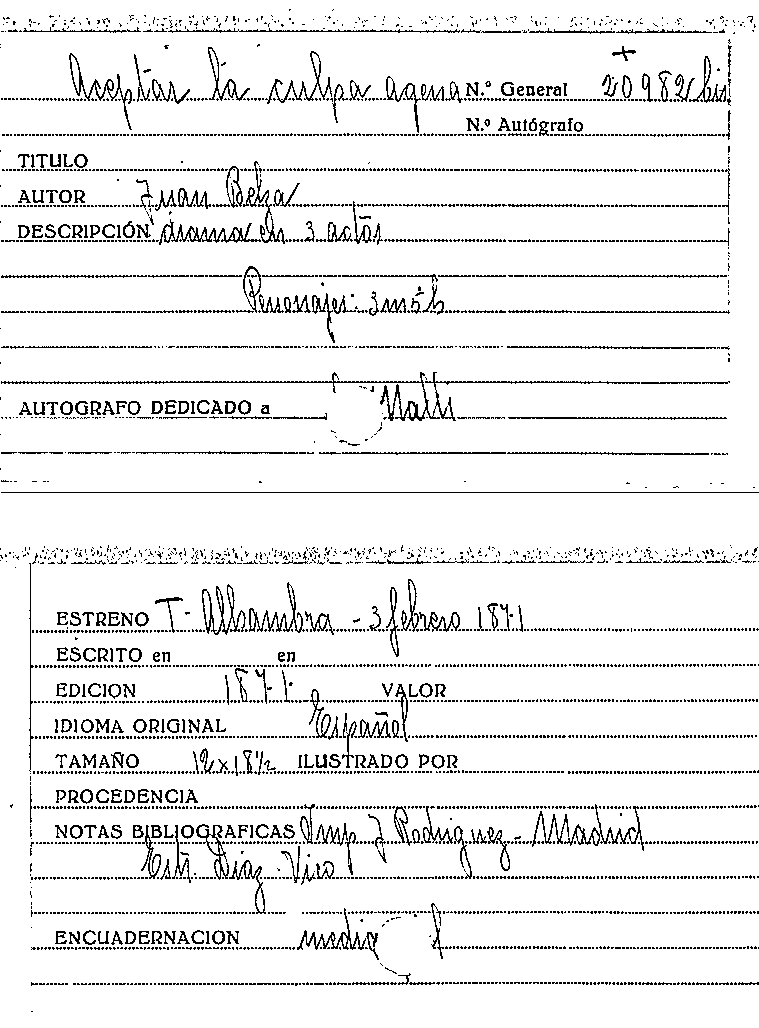 Aceptar la culpa agena N.º General 20982 bis
N.º Autógrafo
TITULO
AUTOR Juan Belza
DESCRIPCIÓN drama en 3 actos
Personajes: 3m 5h
AUTOGRAFO DEDICADO a
ESTRENO T. Alhambra - 3 febrero 1871
ESCRITO en en
EDICION 1871 VALOR
IDIOMA ORIGINAL Español
TAMAÑO 12 x 18½ ILUSTRADO POR
PROCEDENCIA
NOTAS BIBLIOGRAFICAS Imp J Rodriguez - Madrid
Estr. Diaz - Vico
ENCUADERNACION media